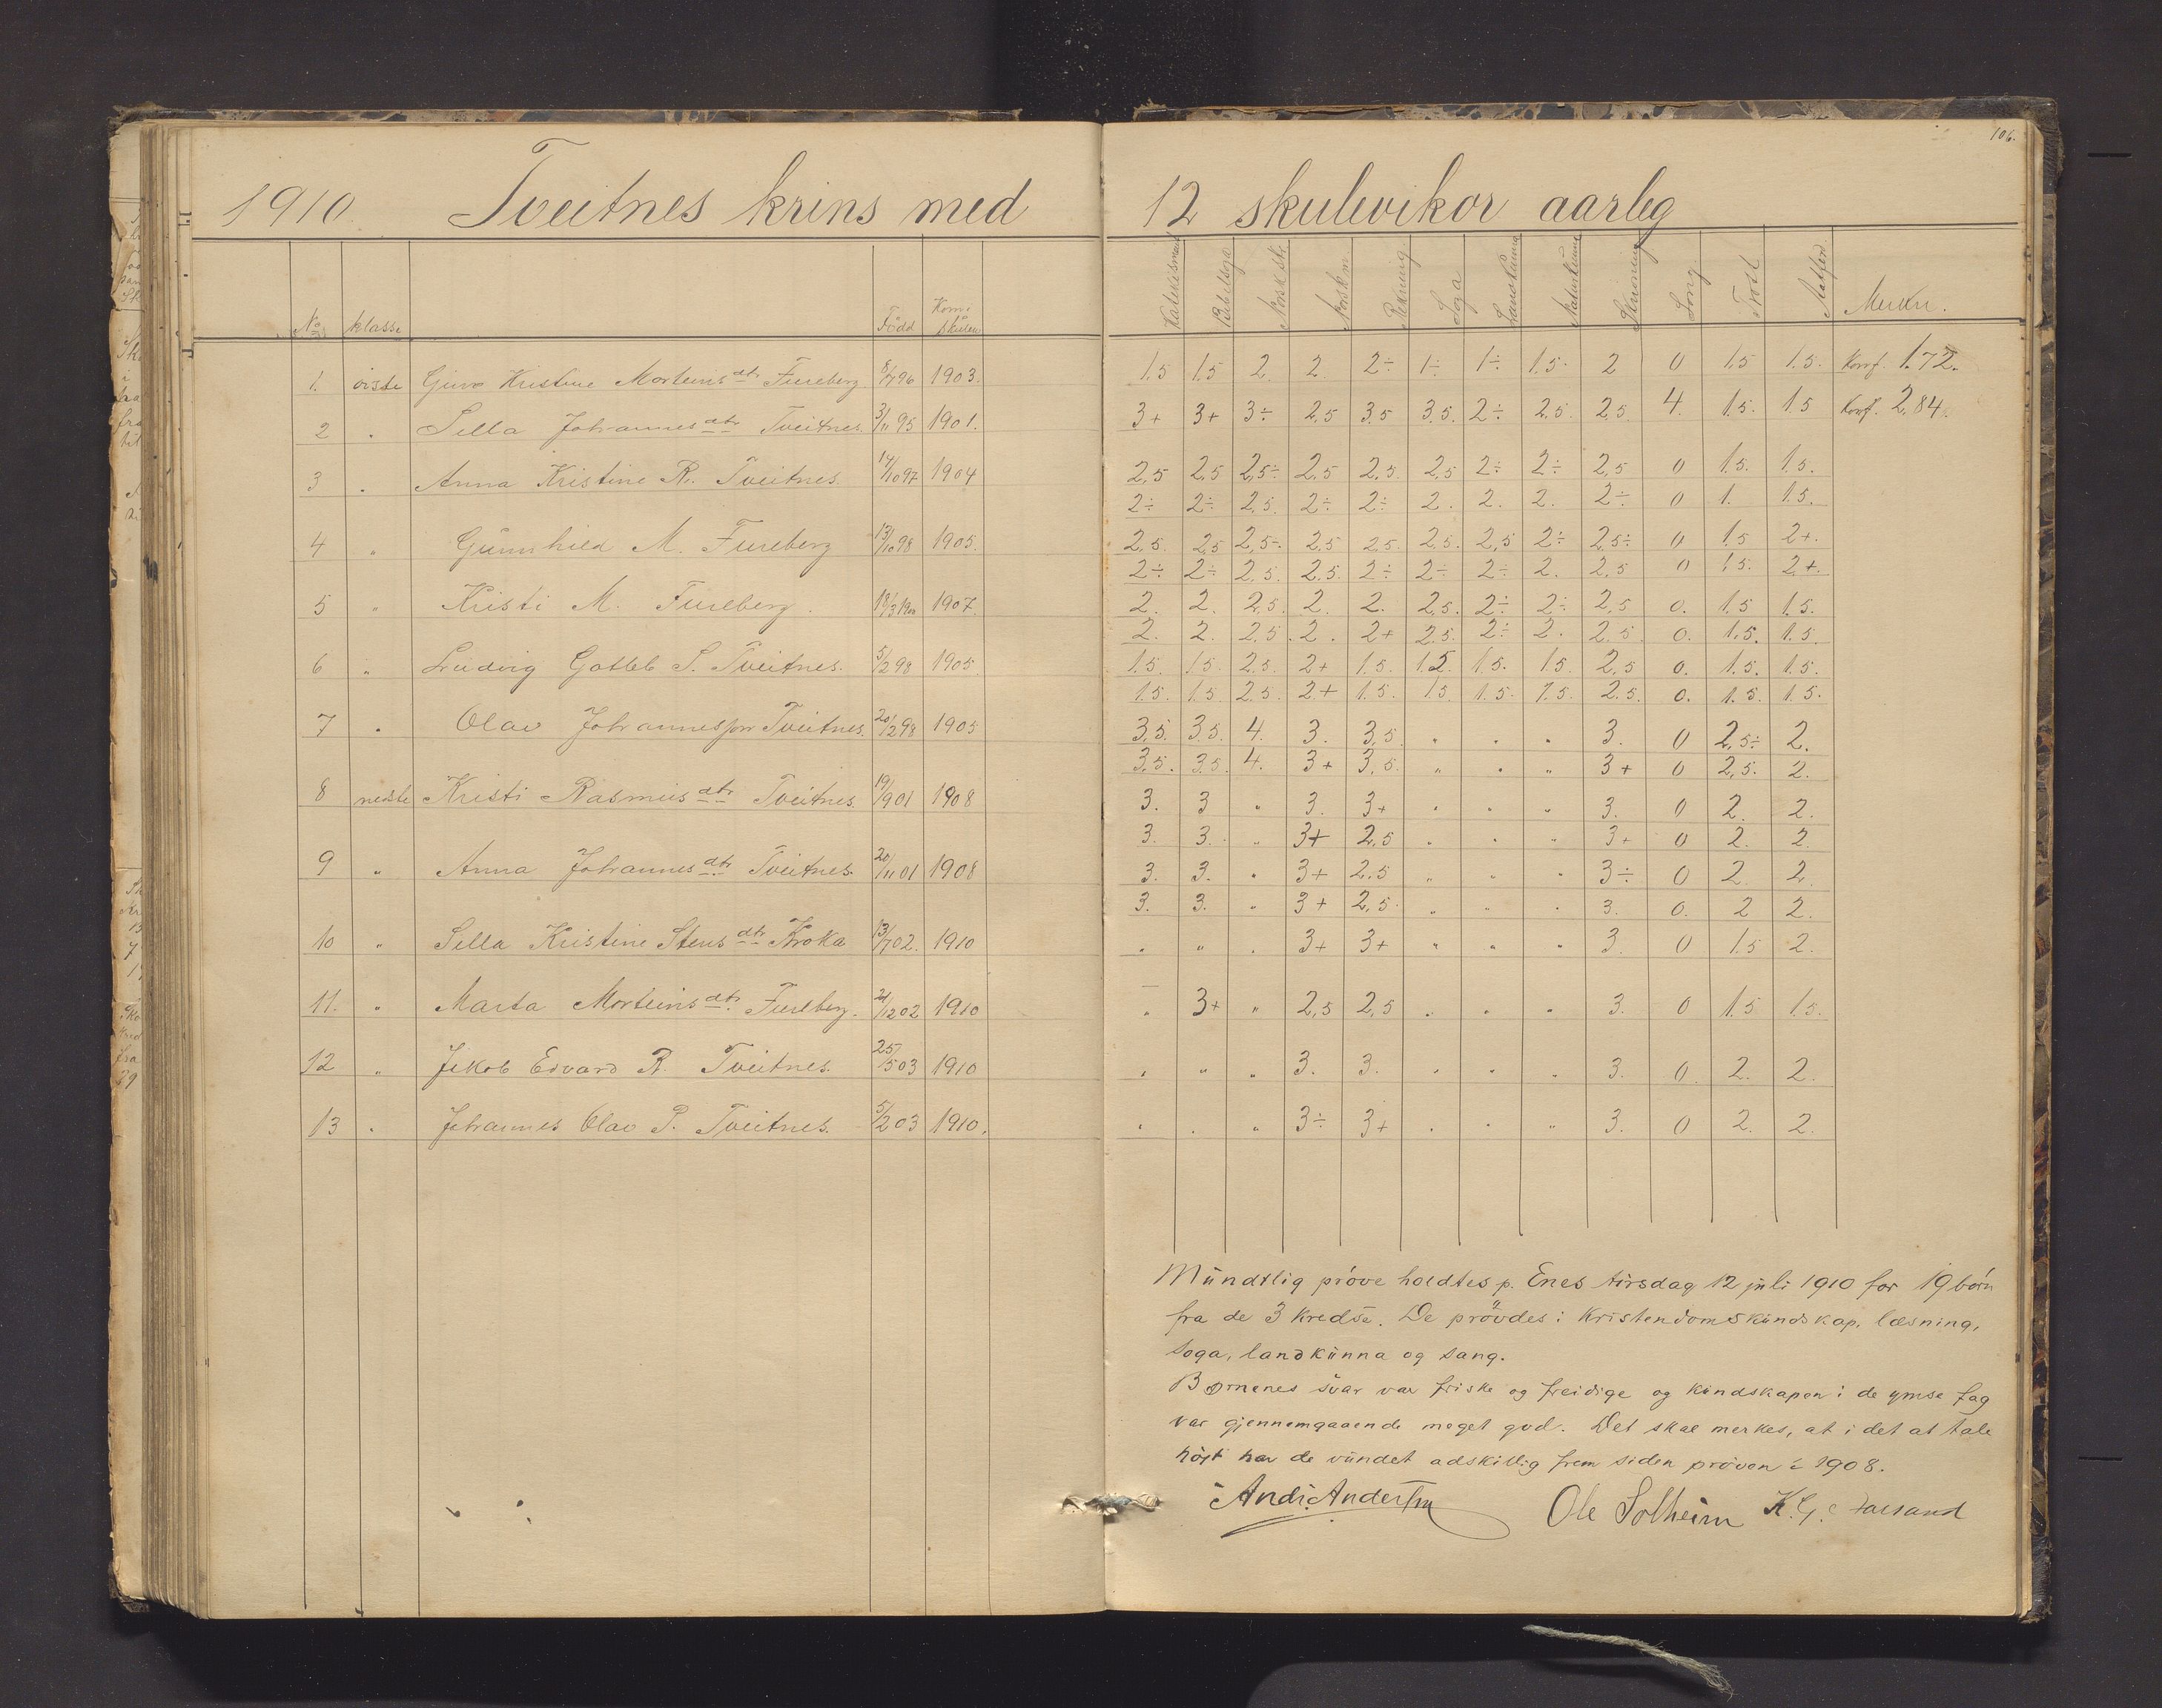 106.
1910. Tveitnes krins med 12 skulevikor aarleg
No klasse Född Kom i skulen Katekisme Bibelsoga Norsk sk. Norsk m. Rekning Soga Landkunna Naturkunna Skrivning Song Flid Aatferd Merkn.
1. övste Guro Kristine Morteinsdtr Fureberg 8/7 96 1903. 1.5 1.5 2. 2. 2÷ 1÷ 1÷ 1.5. 2 0 1.5 1.5. Konf. 1.72.
2 " Sella Johannesdtr Tveitnes. 3/11 95 1901. 3+ 3+ 3÷ 2.5 3.5 3.5. 2÷ 2.5. 2.5. 4. 1.5. 1.5 Konf. 2,84.
3 " Anna Kristine R. Tveitnes. 14/10 97 1904 2,5 2,5 2,5÷ 2,5 2,5. 2,5 2÷ 2÷ 2,5 0 1.5. 1.5.
2÷ 2÷ 2,5. 2÷ 2÷ 2. 2. 2. 2÷ 0 1. 1.5.
4 " Gunnhild M. Fureberg 13/10 98 1905. 2,5. 2,5 2,5÷. 2,5 2,5. 2,5. 2,5 2÷ 2,5÷ 0 1.5 2+.
2÷ 2÷ 2,5. 2,5. 2÷ 2÷ 2÷ 2. 2,5 0 1.5. 2+.
5 " Kristi M. Fureberg. 18/3 1900 1907. 2. 2. 2,5. 2. 2. 2,5. 2÷ 2÷ 2,5 0. 1.5 1.5.
2. 2. 2.5. 2. 2+ 2.5. 2÷ 2. 2.5. 0. 1.5. 1.5.
6 " Ludvig Gotleb S. Tveitnes. 5/2 98 1905 1.5. 1.5. 2.5. 2+ 1.5. 1.5. 1.5. 1.5. 2,5 0. 1.5. 1.5.
1.5. 1.5. 2.5. 2+ 1.5. 1.5 1.5. 1.5. 2.5. 0. 1.5. 1.5.
7 " Olav Johannesson Tveitnes. 20/12 98 1905 3,5. 3,5. 4. 3. 3,5. " " " 3. 0 2,5÷ 2.
3,5. 3,5. 4. 3+ 3,5. " " " 3+ 0 2,5. 2.
8 nedste Kristi Rasmusdtr Tveitnes. 19/9 01 1908 3. 3 " 3. 3+ " " " 3. 0 2. 2.
3. 3. " 3+ 2,5 " " " 3+ 0 2. 2.
9 " Anna Johannesdtr Tveitnes. 20/11 01 1908 3. 3. " 3+ 2.5 " " " 3÷ 0 2. 2.
3. 3. " 3+ 2,5. " " " 3. 0. 2 2.
10 " Sella Kristine Stensdtr Kroka 13/7 02. 1910 " " " 3+ 3+ " " " 3. 0 1.5 2.
11. " Marta Morteinsdtr Fureberg. 21/12 02 1910 " 3+ " 2,5 2,5 " " " 3. 0 1.5 1.5.
12 " Jakob Edvard R. Tveitnes. 25/5 03 1910 " " " 3. 3. " " " 3. 0. 2. 2.
13 " Johannes Olav P. Tveitnes. 5/2 03 1910. " " " 3÷ 3+ " " " 3. 0 2. 2.
Mündtlig pröve holdtes p. Enes tirsdag 12 juli 1910 for 19 börn
fra de 3 kredse. De prövdes i kristendomskundskap, læsning,
soga, landkunna og sang.
Börnenes svar var friske og freidige og kundskapen i de ymse fag
var gjennemgaaende meget god. Det skal merkes, at i det at tale
höjt har de vundet adskillig frem siden pröven i 1908.
And. Andersen Ole Solheim K. G.